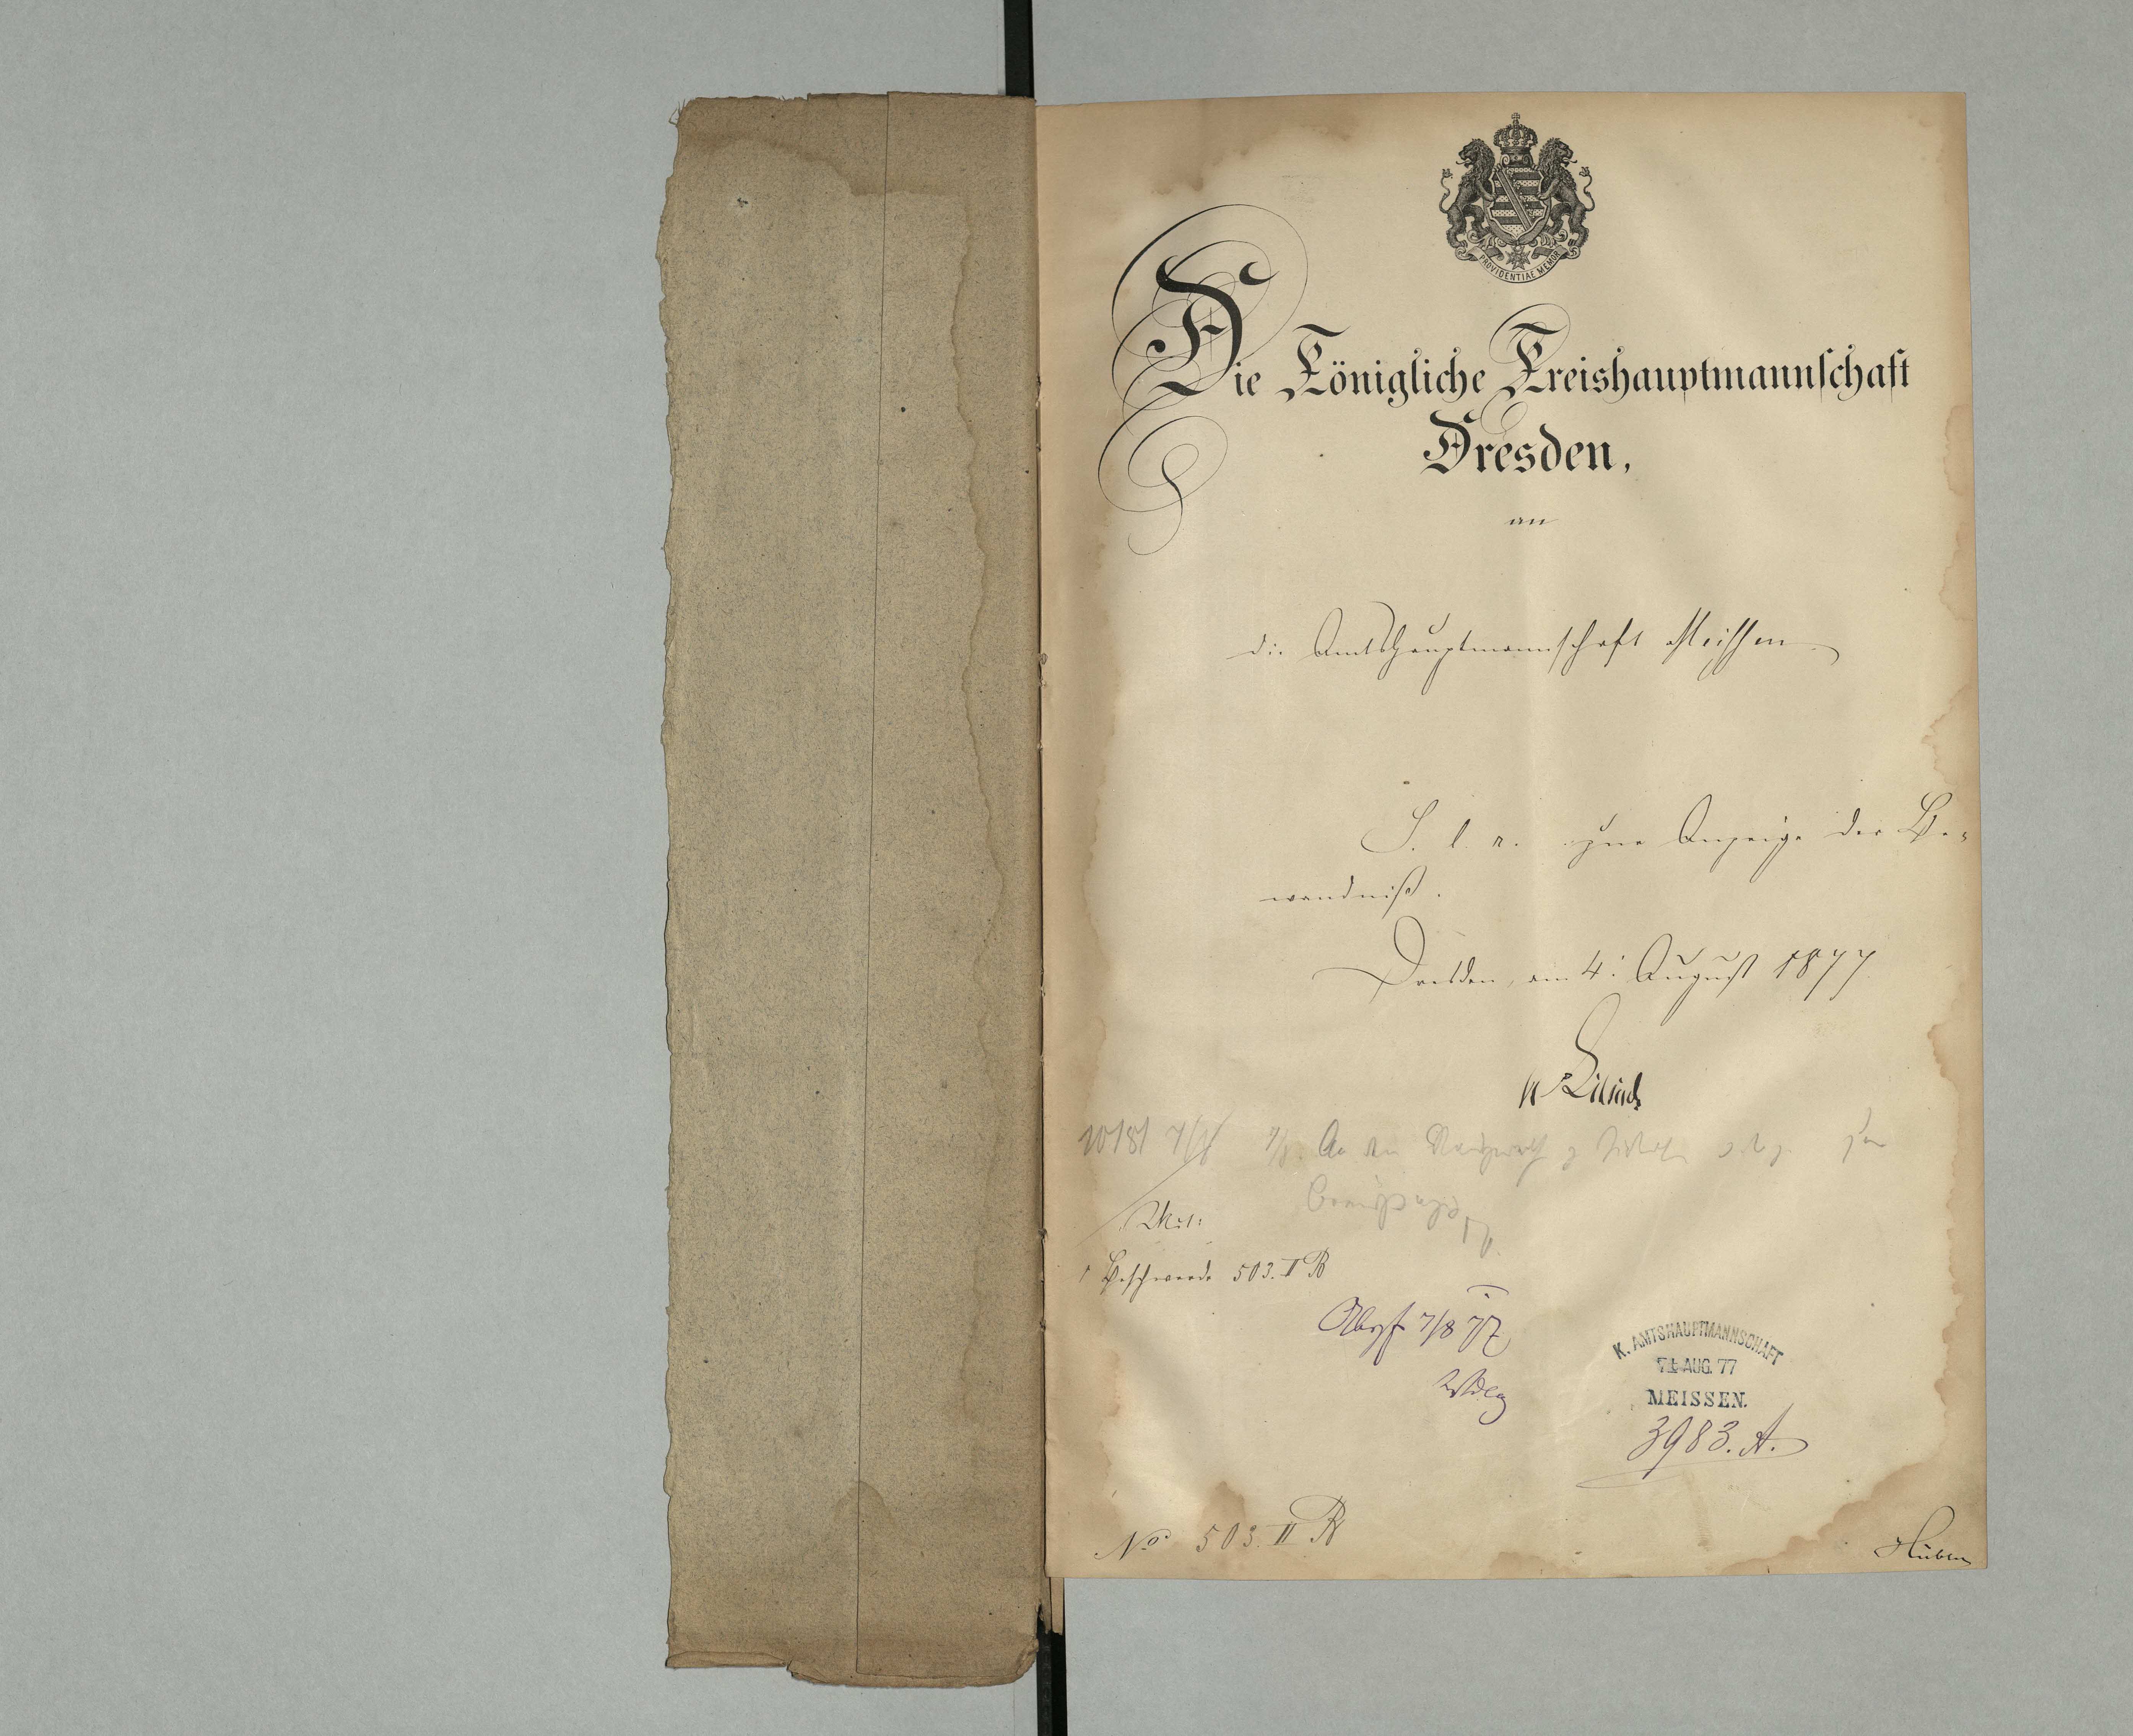 PROVIDENTIAE MEMOR
Die Königliche Kreishauptmannschaft
Dresden,
an
die Amtshauptmannschaft Meissen
S. l. r. zur Anzeige der Be-
wandniß.
Dresden, am 4. August 1877.
10/8/ 7/8 An den
Beschwerde 503. II R
Abgf 7/8 77
K. AMTSHAUPTMANNSCHAFT
AUG. 77
MEISSEN.
3983. A.
No 503. II R